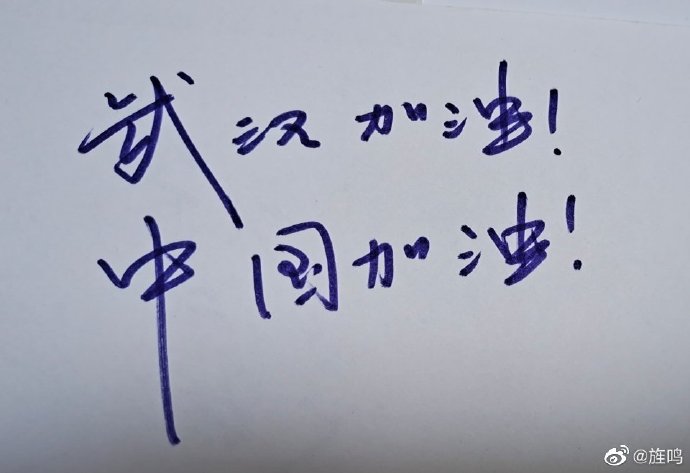 武汉加油!
中国加油!
@旌鸣